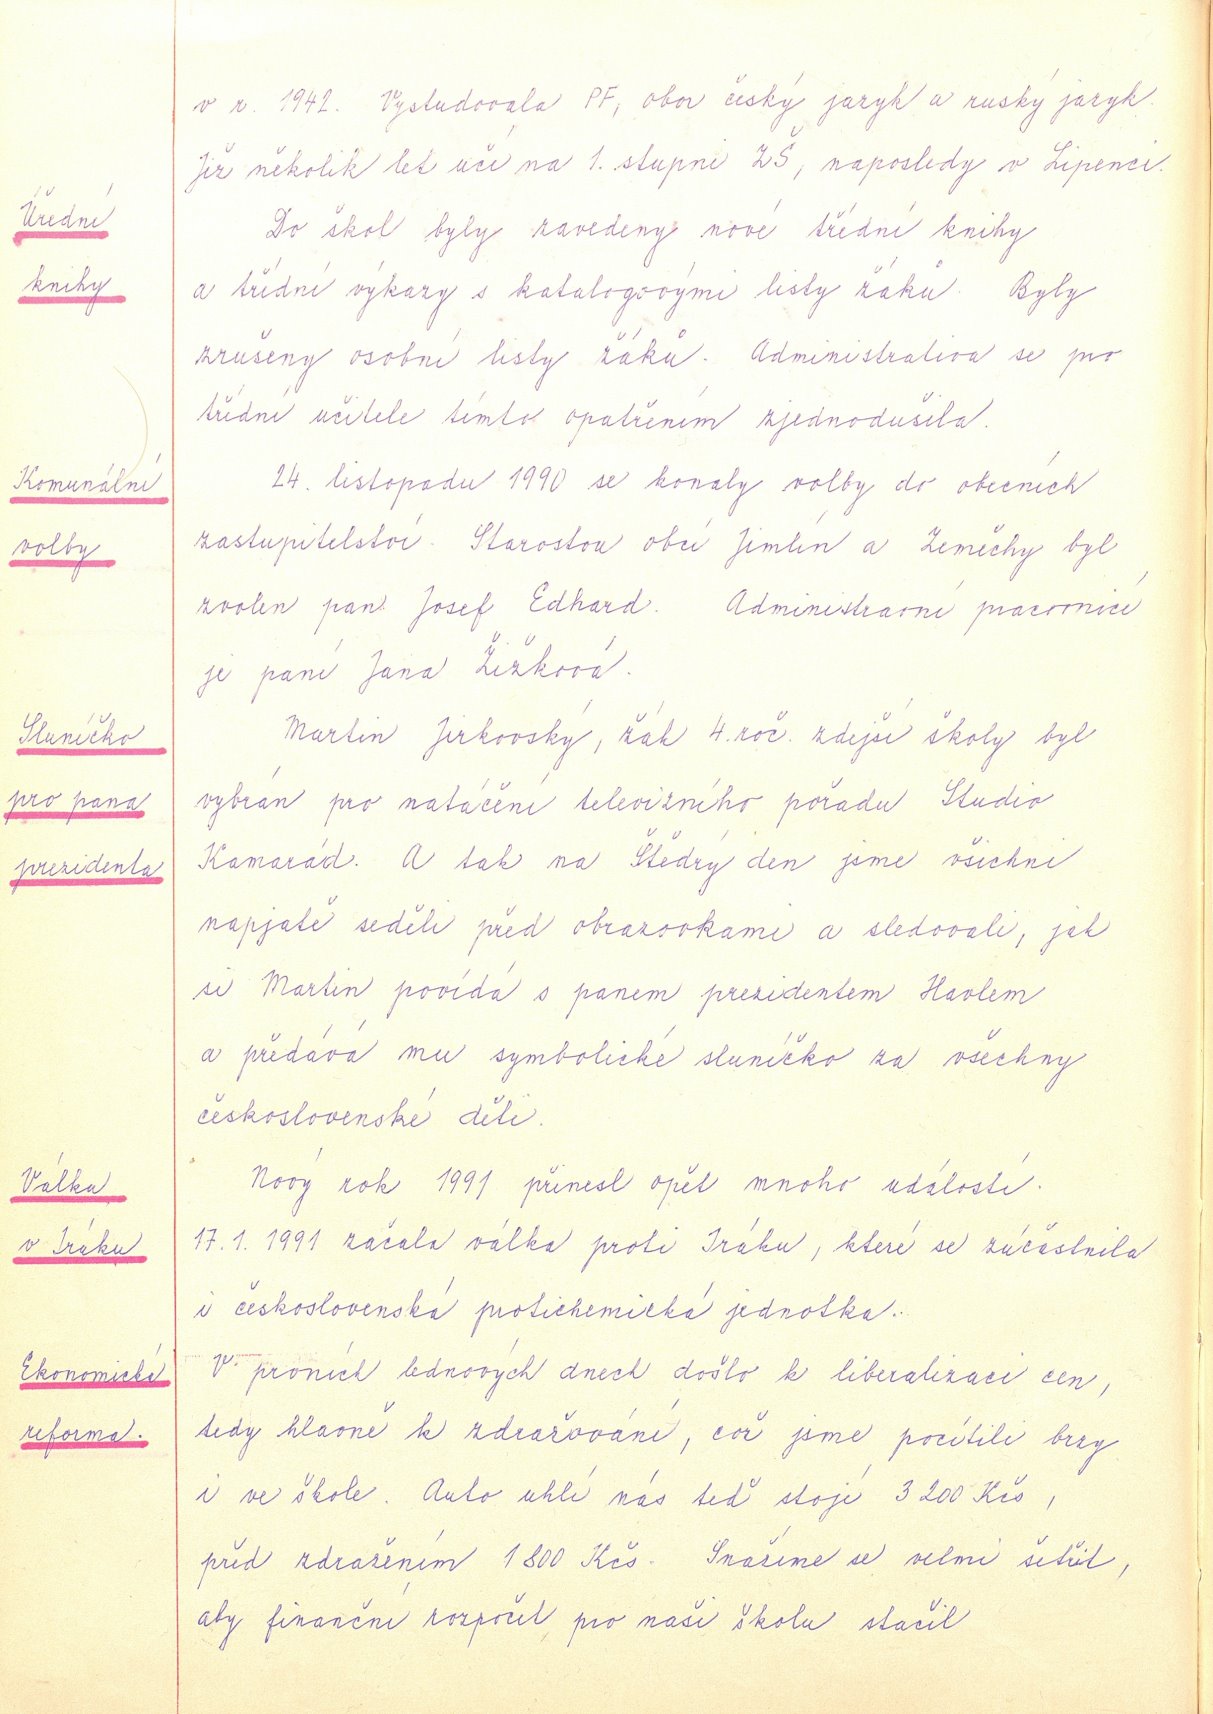 v r. 1942. Vystudovala PF, obor český jazyk a ruský jazyk.
Již několik let učí na 1. stupni ZŠ, naposledy v Lipenci.
Úřední
knihy
Do škol byly zavedeny nové třídní knihy
a třídní výkazy s katalogovými listy žáků. Byly
zrušeny osobní listy žáků. Administrativa se pro
třídní učitele tímto opatřením zjednodušila.
Komunální
volby
24. listopadu 1990 se konaly volby do obecních
zastupitelství. Starostou obcí Jimlín a Zeměchy byl
zvolen pan Josef Edhard. Administravní pracovnicí
je paní Jana Žižková.
Sluníčko
pro pana
prezidenta
Martin Jirkovský, žák 4. roč. zdejší školy byl
vybrán pro natáčení televizního pořadu Studio
Kamarád. A tak na Štědrý den jsme všichni
napjatě seděli před obrazovkami a sledovali, jak
si Martin povídá s panem prezidentem Havlem
a předává mu symbolické sluníčko za všechny
československé děti.
Válka
v Iráku
Nový rok 1991 přinesl opět mnoho událostí.
17. 1. 1991 začala válka proti Iráku, které se zúčastnila
i československá protichemická jednotka.
Ekonomická
reforma.
V prvních lednových dnech došlo k liberalizaci cen,
tedy hlavně k zdražování, což jsme pocítili brzy
i ve škole. Auto uhlí nás teď stojí 3 200 Kčs,
před zdražením 1 800 Kčs. Snažíme se velmi šetřit,
aby finanční rozpočet pro naši školu stačil